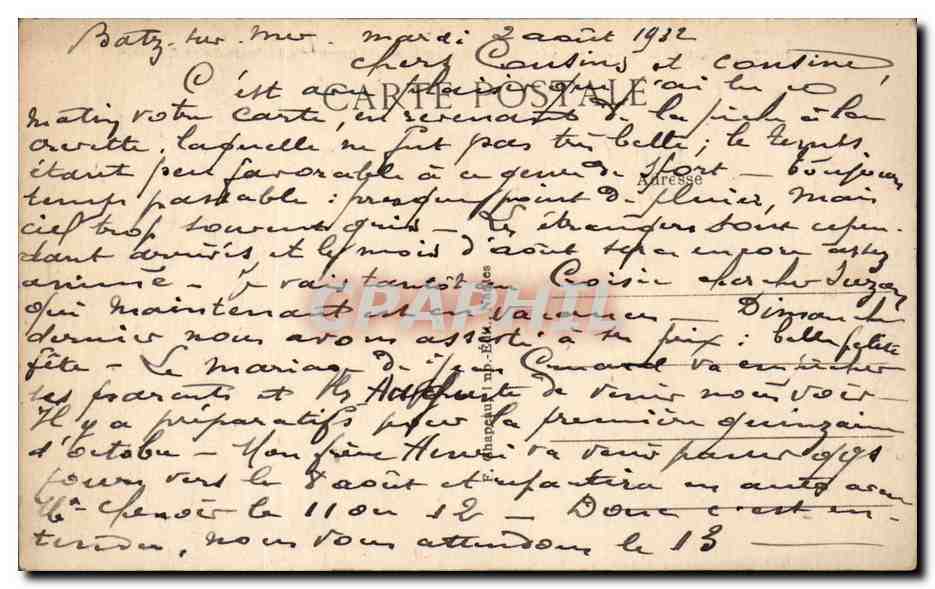 Batz-sur-Mer. mardi 2 août 1932
chers Cousins et cousine,
CARTE POSTALE
C'est avec plaisir que j'ai lu ce
matin votre carte, en revenant de la pêche à la
crevette, laquelle ne fut pas très belle ; le temps
étant peu favorable à ce genre de sport — Toujours
Adresse
temps passable : presque point de pluie, mais
ciel trop souvent gris — Les étrangers sont cepen-
dant arrivés, et le mois d'août sera encore assez
animé — Je vais tantôt au Croisic chercher Suzan
qui maintenant est en vacances — Dimanche
dernier nous avons assisté à : belle petite
fête — Le mariage de va empêcher
ses parents et Auguste de venir nous voir —
Il y a préparatifs pour la première quinzaine
d'octobre — Mon frère Henri va venir passer qqs
jours vers le 8 août et repartira en auto avec
le 11 ou 12 — Donc c'est en-
tendu, nous vous attendons le 13
F. Chapeau, Imp.-Edit., Nantes
CPAPHIL